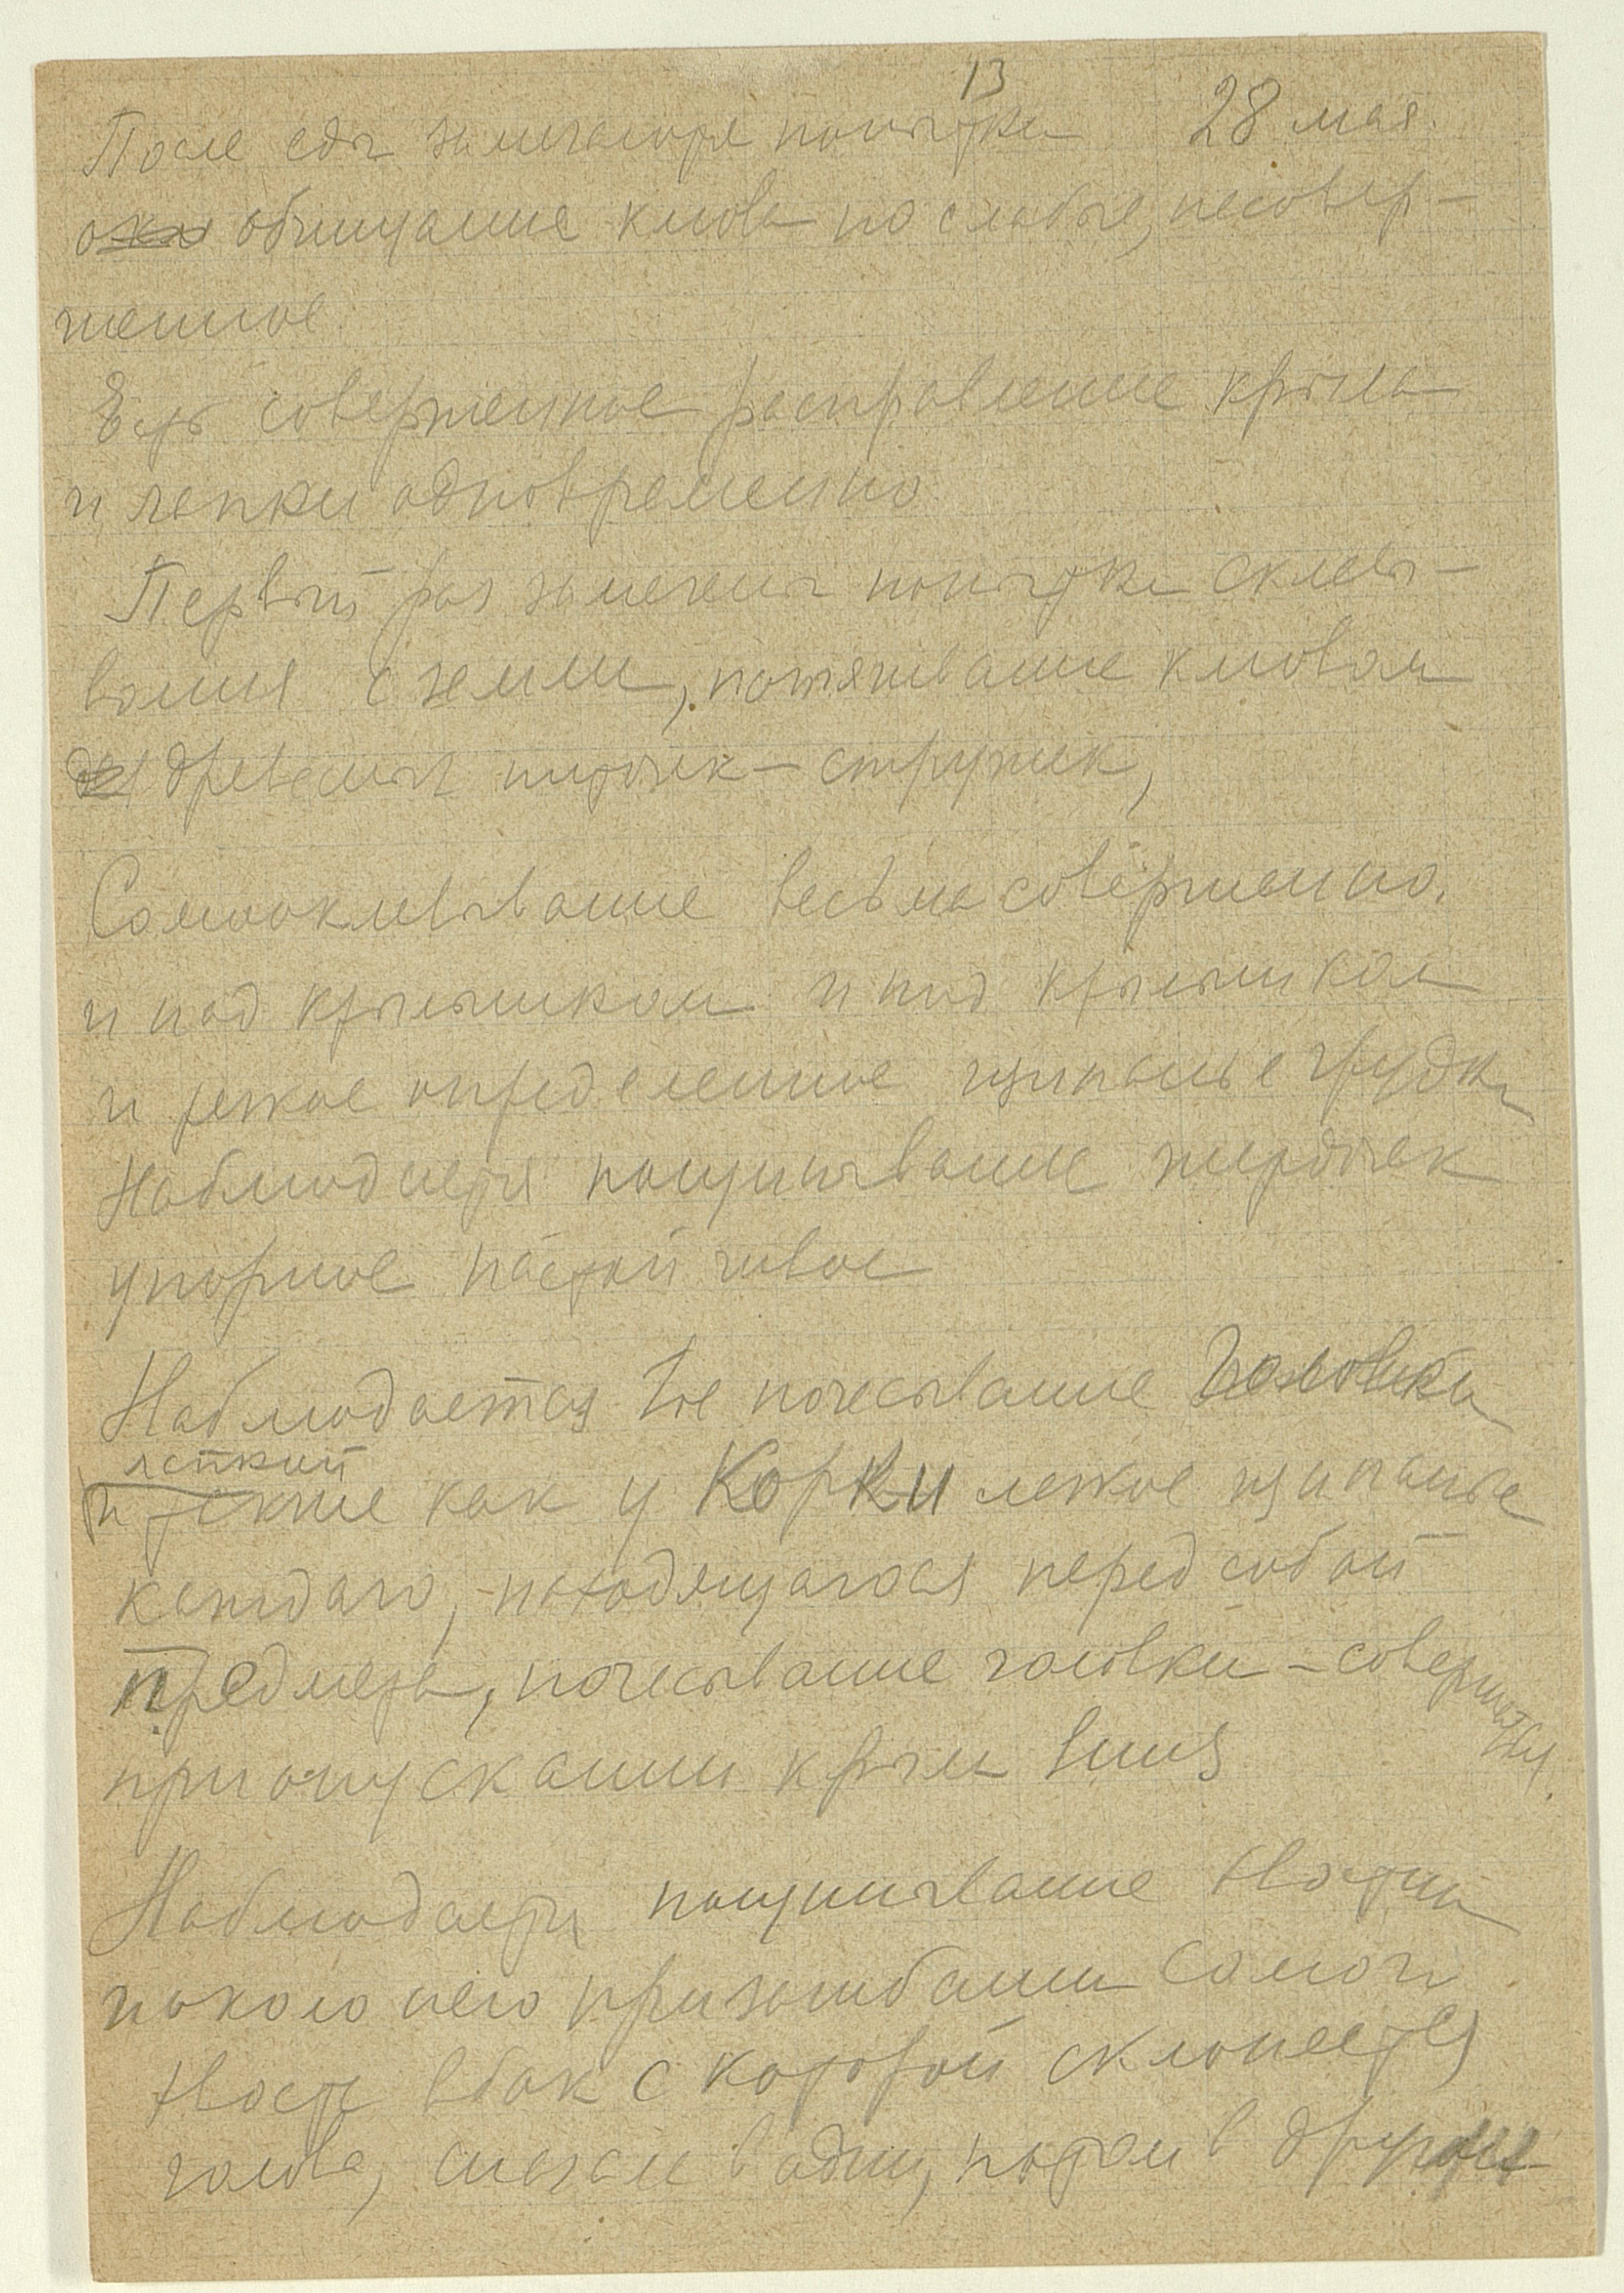 13
После еды замечается попытки 28 мая.
обчищание клюва но слабые, несовер-
шенное.
Есть совершенное расправление крыла
и лапки одновременно
Первый раз замечены попытки склевы-
вания с земли, потягивание клювом
древесных ниточек - стружек,
Самооклевывание весьма совершенно.
и над крылышком и под крылышком
и резкое определенное щипанье грудки
Наблюдается пощипывание жердочек
упорное настойчивое
Наблюдается почесывание головки
лапкой
и также как у Корки легкое щипанье
каждаго, находящагося перед собой
предмета, почесывание головки - совершенн.
при опускании крыла вниз
Наблюдается пощипывание хвоста
и около него при загибании самого
хвоста вбок с которой склоняется
голова, сначала в одну, потом в другую